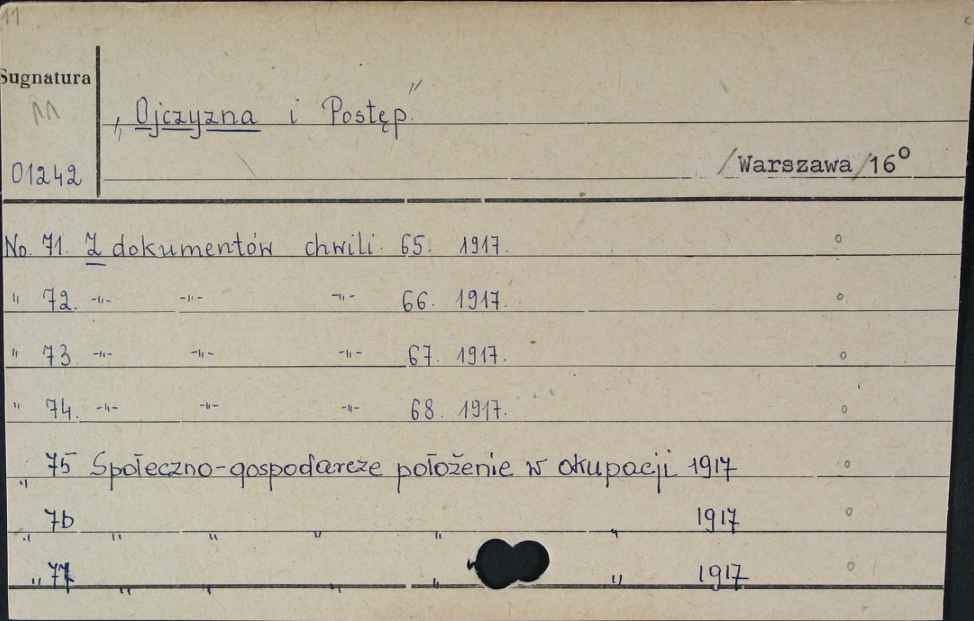 11
Sugnatura
11
„Ojczyzna i Postęp."
01242
/Warszawa/16°
No. 71. Z dokumentów chwili. 65. 1917.
" 72. -"- -"- -"- 66. 1917.
" 73 -"- -"- -"- 67. 1917.
" 74. -"- -"- -"- 68. 1917.
" 75 Społeczno-gospodarcze położenie w okupacji 1917
" 76 " " " " " 1917
" 77 " " " " " 1917